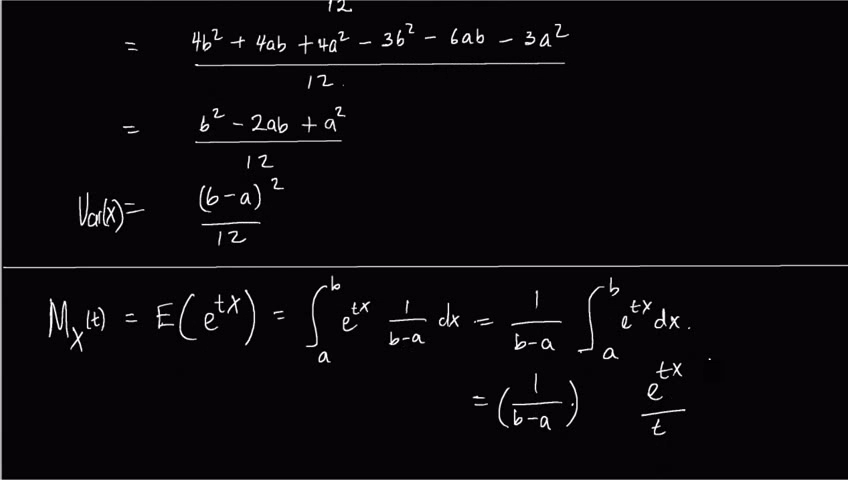 12
= 4b² + 4ab + 4a² - 3b² - 6ab - 3a² / 12.
= b² - 2ab + a² / 12
Var(x) = (b-a)² / 12
M_X(t) = E(e^{tx}) = ∫_a^b e^{tx} 1/(b-a) dx = 1/(b-a) ∫_a^b e^{tx} dx.
= (1/(b-a)) e^{tx}/t